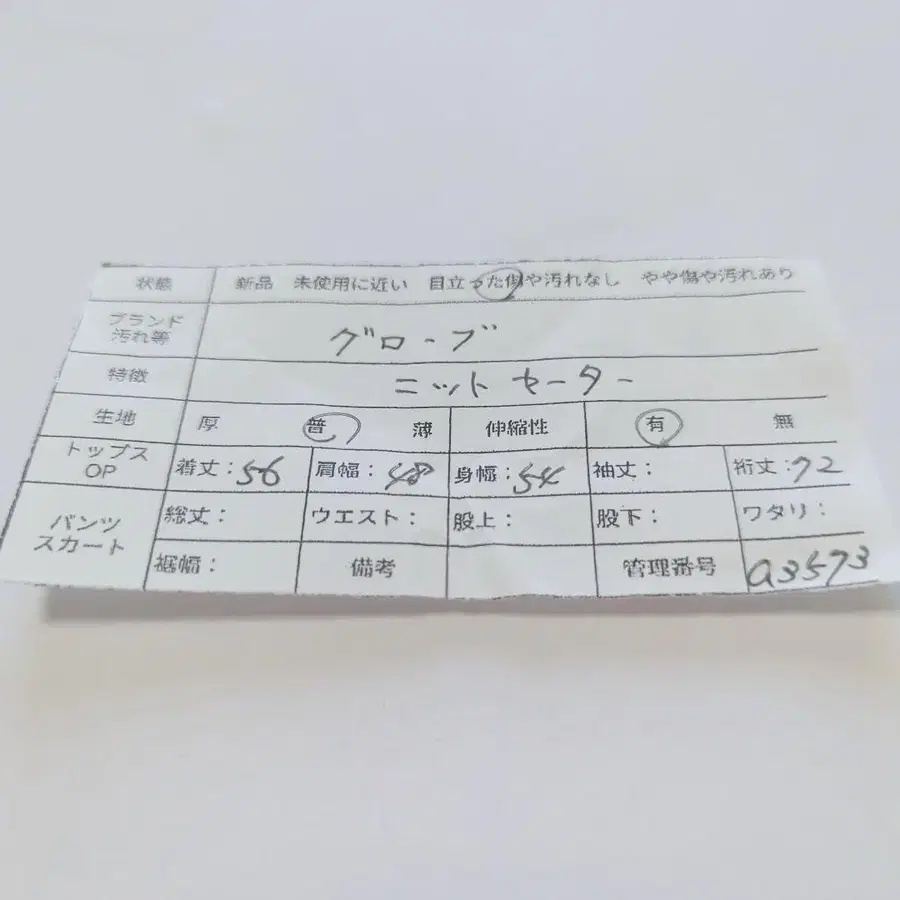 状態 新品 未使用に近い 目立った傷や汚れなし やや傷や汚れあり
ブランド
汚れ等 グローブ
特徴 ニットセーター
生地 厚 普 薄 伸縮性 有 無
トップス
OP 着丈:56 肩幅:48 身幅:54 袖丈: 裄丈:72
パンツ
スカート 総丈: ウエスト: 股上: 股下: ワタリ:
裾幅: 備考 管理番号 a3573